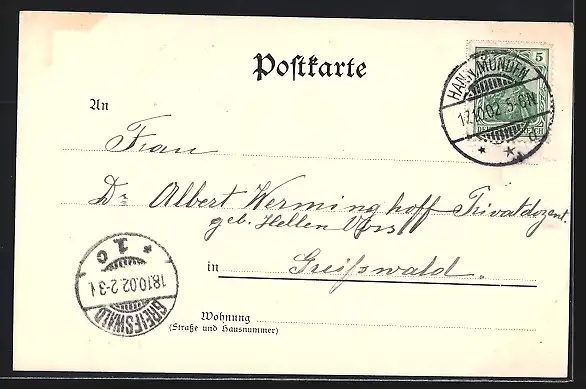 Postkarte
5
HANN. MÜNDEN
17.10.02. 5-6N
An
Frau
Dr Albert Werminghoff Privatdozent.
geb. Hellen
in Greifswald.
* 1 c
18.10.02. 2-3
GREIFSWALD
Wohnung
(Straße und Hausnummer)